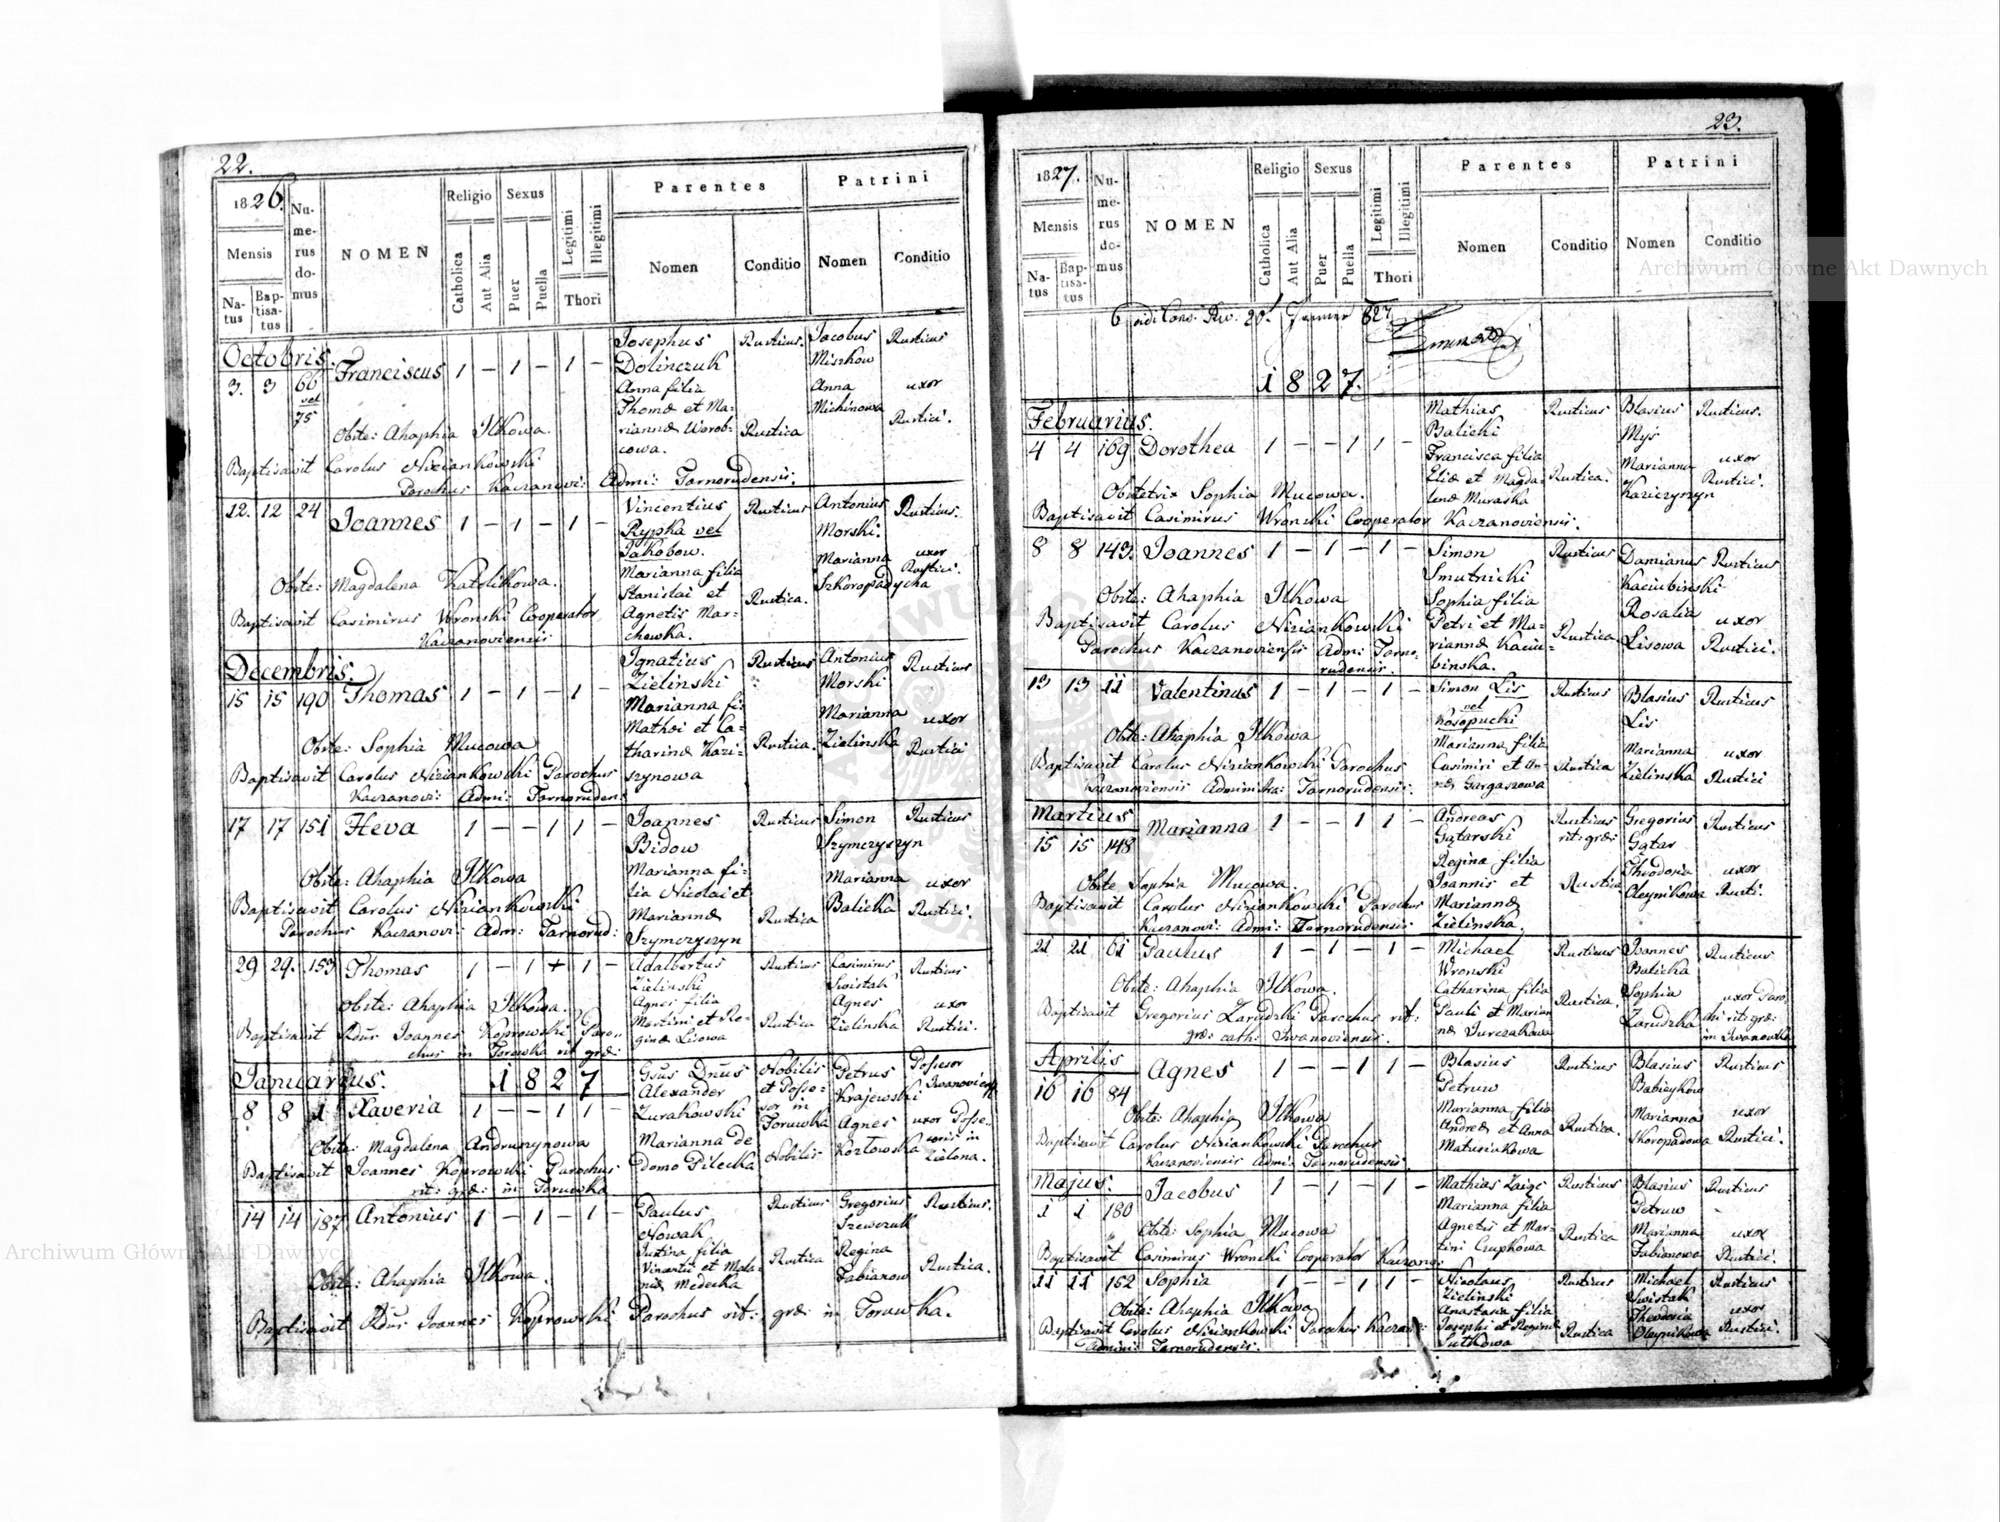 22.
1826.
Mensis
Natus
Baptisatus
Numerus domus
NOMEN
Religio
Catholica
Aut Alia
Sexus
Puer
Puella
Legitimi
Illegitimi
Thori
Parentes
Nomen
Conditio
Patrini
Nomen
Conditio
Octobris.
3. 3 66 vel 75 Franciscus 1 – 1 – 1 –
Josephus
Dolinczuk
Anna filia
Thomæ et Ma-
riannæ Worob-
cowa.
Rusticus.
Rustica
Jacobus
Miszkow
Anna
Michinowa
Rusticus
uxor
Rustici.
Obste: Ahaphia Ilkowa.
Baptisavit Carolus Niziankowski
Parochus Kaczanovi: Admi: Tarnorudensis.
12. 12 24 Joannes 1 – 1 – 1 –
Vincentius
Rypka vel
Jakobow.
Marianna filia
Stanislai et
Agnetis Mar-
chewka.
Rusticus
Rustica.
Antonius
Morski.
Marianna
Szkoropadycha
Rusticus.
uxor
Rustici.
Obste: Magdalena Katolikowa.
Baptisavit Casimirus Wronski Cooperator
Kaczanoviensis
Decembris.
15 15 190 Thomas 1 – 1 – 1 –
Ignatius
Zielinski
Marianna fi-
Mathei et Ca-
tharinæ Kazi-
szynowa
Rusticus
Rustica.
Antonius
Morski
Marianna
Zielinska
Rusticus
uxor
Rustici
Obste: Sophia Mucowa
Baptisavit Carolus Niziankowski Parochus
Kaczanovi: Admi: Tarnoruden:
17 17 151 Heva 1 – – 1 1 –
Joannes
Bidow
Marianna fi-
lia Nicolai et
Mariannæ
Szymczyszyn
Rusticus
Rustica
Simon
Szymczyszyn
Marianna
Balicka
Rusticus
uxor
Rustici.
Obste: Ahaphia Ilkowa
Baptisavit Carolus Niziankowski
Parochus Kaczanovi: Adm: Tarnorud:
29 29. 153 Thomas 1 – 1 + 1 –
Adalbertus
Zielinski
Agnes filia
Martini et Re-
ginæ Lisowa
Rusticus
Rustica
Casimirus
Swistak
Agnes
Zielinska
Rusticus
uxor
Rustici.
Obste: Ahaphia Ilkowa.
Baptisavit Rdus Joannes Koprowski Paro-
chus in Toruwka rit græ:
Januarius. 1827
8 8 1 Xaveria 1 – – 1 1 –
Gsus Dnus
Alexander
Zurakowski
Marianna de
Domo Pilecka
Nobilis
et Posse-
sor in
Toruwka
Nobilis
Petrus
Krajewski
Agnes
Kozłowska
Possesor
Iwanoviens
uxor Posse-
soris in
Zielona.
Obste: Magdalena Andruszynowa
Baptisavit Joannes Koprowski Parochus
rit: græ: in Toruwka
14 14 187 Antonius 1 – 1 – 1 –
Paulus
Nowak
Justina filia
Vincentii et Mala-
niæ Medecka
Rusticus
Rustica
Gregorius
Szewczuk
Regina
Fabianow
Rusticus.
Rustica.
Obste: Ahaphia Ilkowa.
Baptisavit Rdus Joannes Koprowski Parochus rit: græ: in Toruwka.
23.
1827.
Mensis
Natus
Baptisatus
Numerus domus
NOMEN
Religio
Catholica
Aut Alia
Sexus
Puer
Puella
Legitimi
Illegitimi
Thori
Parentes
Nomen
Conditio
Patrini
Nomen
Conditio
1827.
Februarius.
4 4 169 Dorothea 1 – – 1 1 –
Mathias
Balicki
Francisca filia
Eliæ et Magda-
lenæ Muraska
Rusticus
Rustica.
Blasius
Myś
Marianna
Kaziczyszyn
Rusticus.
uxor
Rustici.
Obstetrix Sophia Mucowa.
Baptisavit Casimirus Wronski Cooperator Kaczanoviensis.
8 8 143. Joannes 1 – 1 – 1 –
Simon
Smutnicki
Sophia filia
Petri et Ma-
riannæ Kaciu-
binska.
Rusticus
Rustica
Damianus
Kaciubinski
Rosalia
Lisowa
Rusticus
uxor
Rustici.
Obste: Ahaphia Ilkowa
Baptisavit Carolus Niziankowski
Parochus Kaczanoviensis Adm: Tarno-
rudensis.
13 13 11 Valentinus 1 – 1 – 1 –
Simon Lis
vel
Kosopucki
Marianna filia
Casimiri et An-
næ Gargaszowa
Rusticus
Rustica
Blasius
Lis
Marianna
Zielinska
Rusticus
uxor
Rustici
Obste: Ahaphia Ilkowa
Baptisavit Carolus Niziankowski Parochus
Kaczanoviensis Adminis: Tarnorudensis.
Martius
15 15 148 Marianna 1 – – 1 1 –
Andreas
Gątarski
Regina filia
Joannis et
Mariannæ
Zielinska.
Rusticus
rit: græ:
Rustica
Gregorius
Gątar
Theodosia
Oleynikowa
Rusticus
uxor
Rusti.
Obste Sophia Mucowa.
Baptisavit Carolus Niziankowski Parochus
Kaczanovi: Admi: Tarnorudensis
21 21 61 Paulus 1 – 1 – 1 –
Michael
Wronski
Catharina filia
Pauli et Marian
næ Jurczakowa
Rusticus
Rustica.
Joannes
Balicka
Sophia
Zarudzka
Rusticus
uxor Paro
chi rit: græ:
in Iwanowka
Obste: Ahaphia Ilkowa.
Baptisavit Gregorius Zarudzki Parochus rit:
græ: cath: Iwanoviensis.
Aprilis
16 16 84 Agnes 1 – – 1 1 –
Blasius
Petruw
Marianna filia
Andreæ et Anna
Matusiakowa
Rusticus
Rustica.
Blasius
Babieykow
Marianna
Skoropadowa
Rusticus
uxor
Rustici.
Obste: Ahaphia Ilkowa
Baptisavit Carolus Niziankowski Parochus
Kaczanoviensis Admi: Tarnorudensis.
Majus.
1 1 180 Jacobus 1 – 1 – 1 –
Mathias Zaige
Marianna filia
Agnetis et Mar-
tini Czupkowa
Rusticus
Rustica
Blasius
Petruw
Marianna
Fabianowa
Rusticus
uxor
Rustici.
Obste: Sophia Mucowa
Baptisavit Casimirus Wronski Cooperator Kaczano:
11 11 152 Sophia 1 – – 1 1 –
Nicolaus
Zielinski
Anastasia filia
Josephi et Reginæ
Sutkowa
Rusticus
Rustica
Michael
Swistak
Theodosia
Oleynikowa
Rusticus
uxor
Rustici.
Obste: Ahaphia Ilkowa
Baptisavit Carolus Niziankowski Parochus Kaczano:
Admini: Tarnorudensis.
Archiwum Główne Akt Dawnych
Archiwum Główne Akt Dawnych